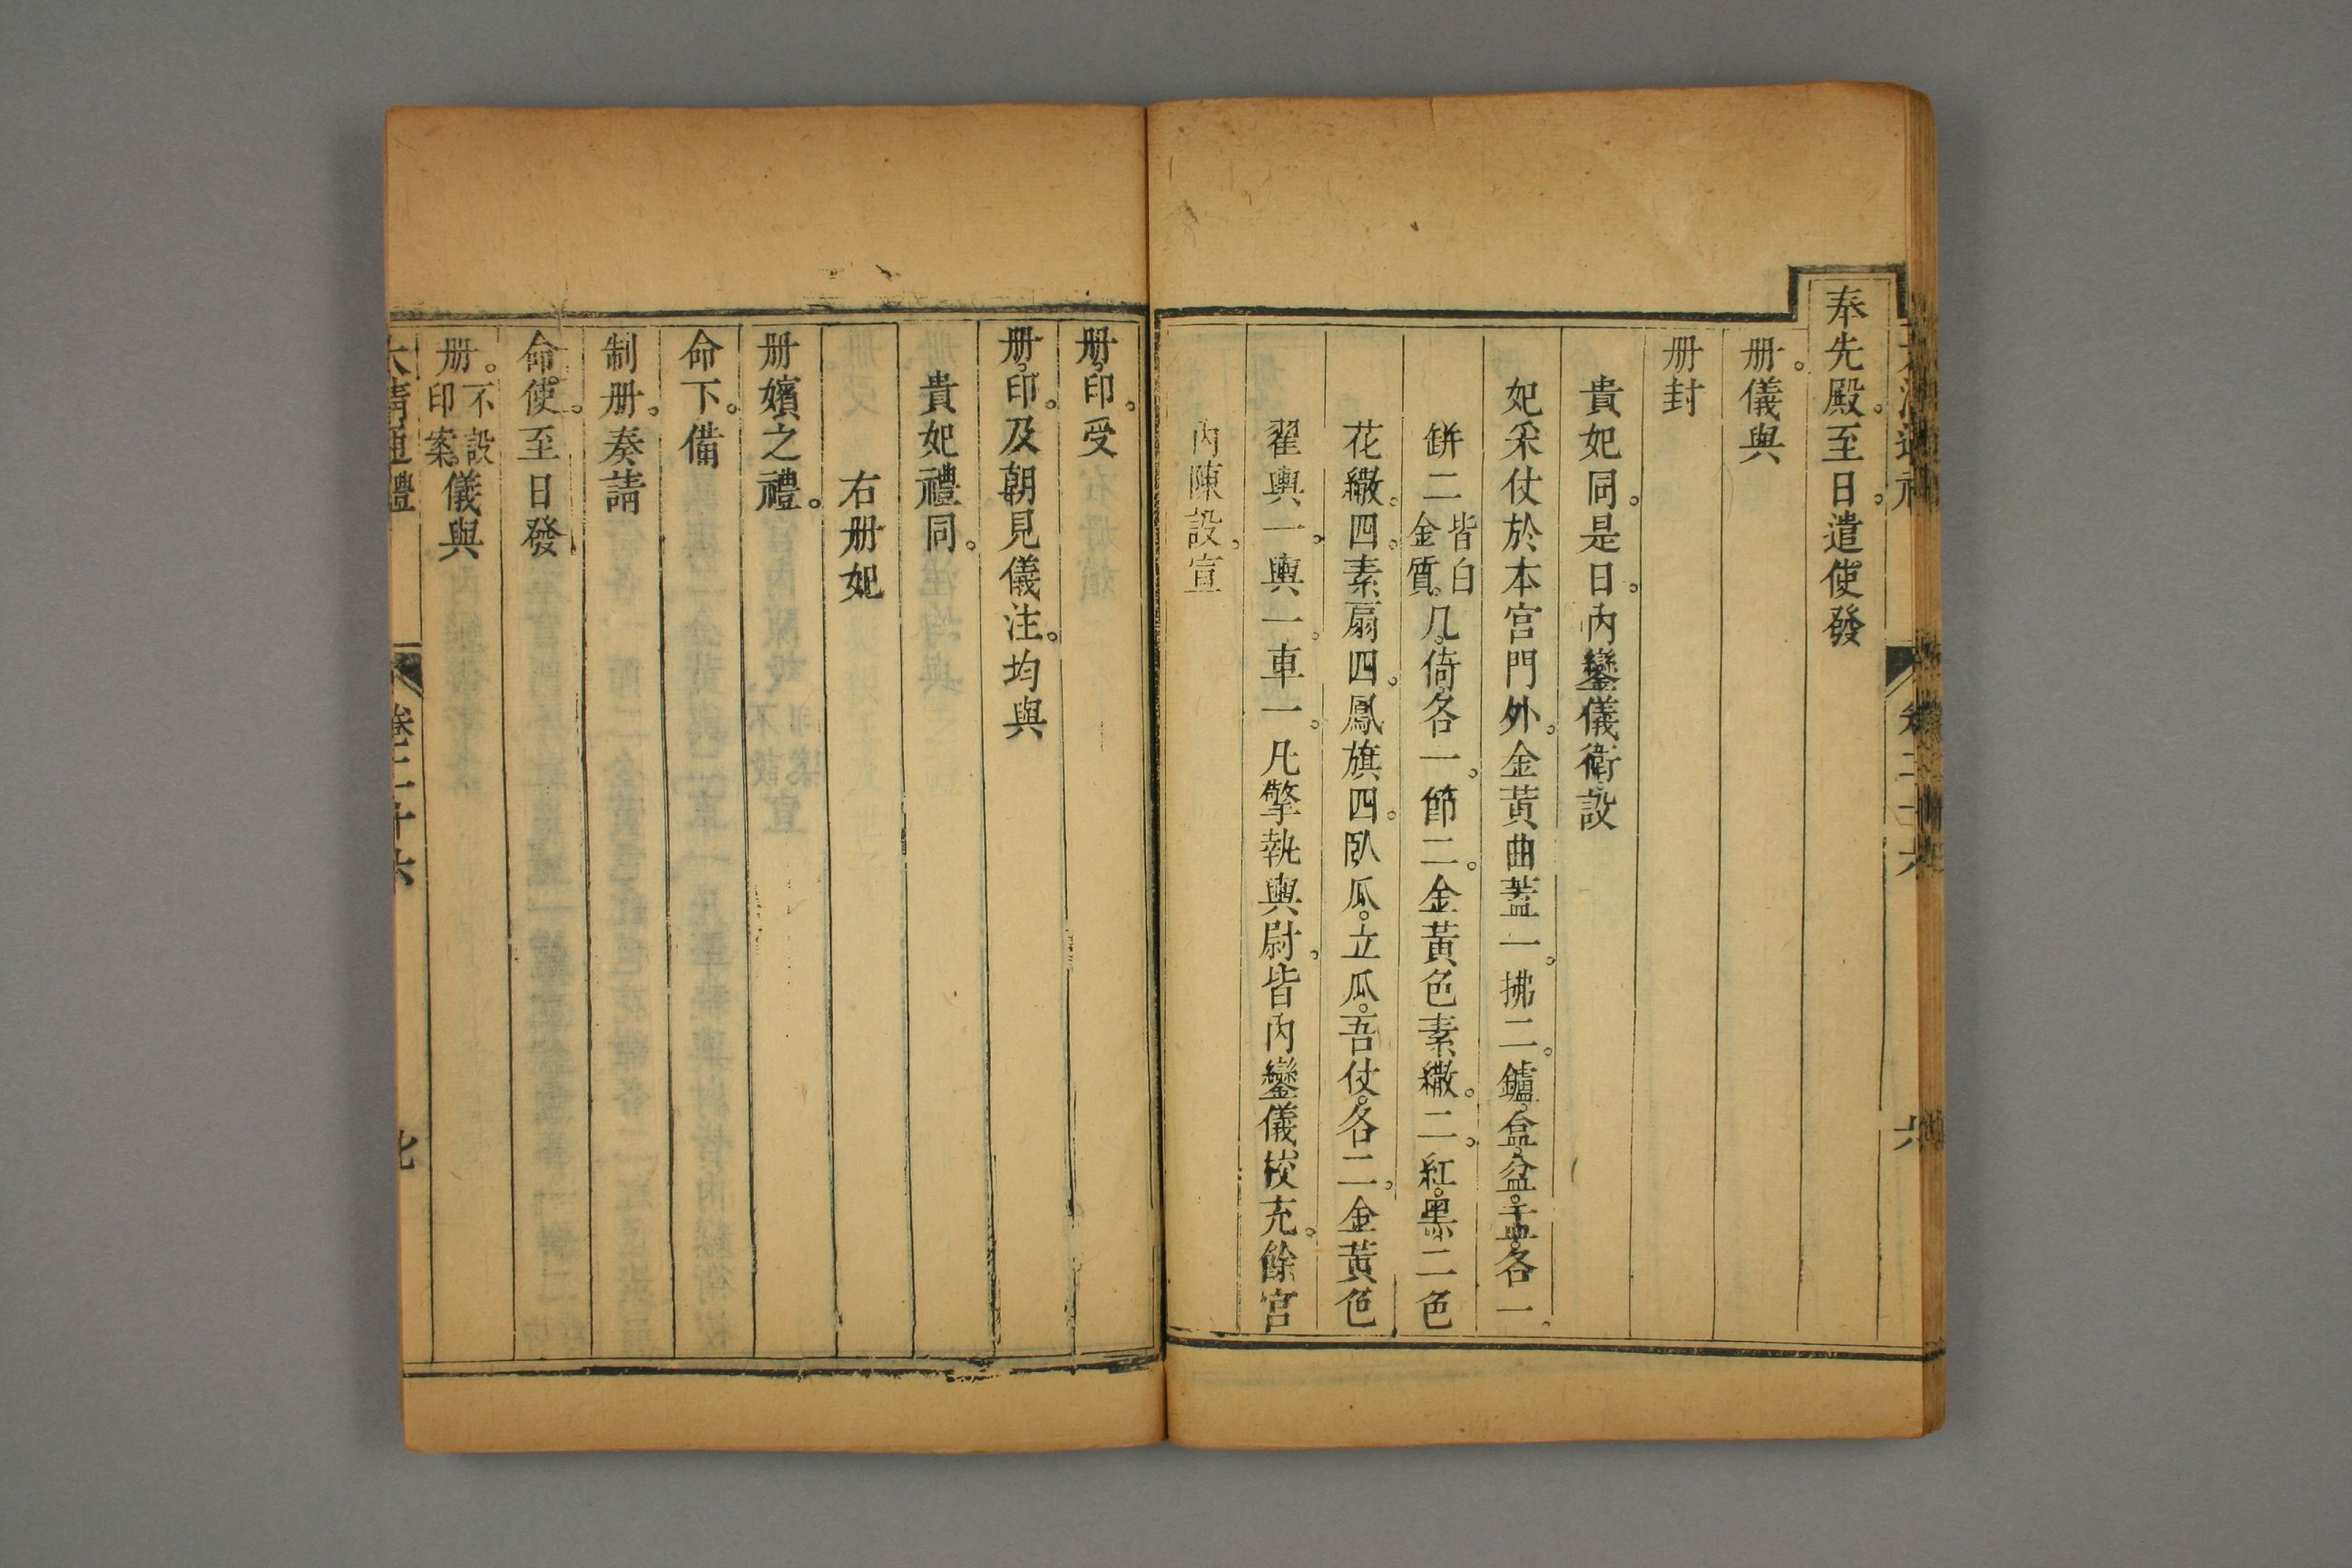 奉先殿。至日。遣使發
册。儀與
册封
貴妃同。是日。內鑾儀衛設
妃采仗於本宮門外。金黃曲蓋一。拂二。鑪。盒。盆。盂。各一。
缾二皆白金質。几。倚。各一。節二。金黃色素繖。二。紅。黑。二色
花繖。四。素扇四。鳳旗四。臥瓜。立瓜。吾仗。各二。金黃色
翟輿一。輿一。車一。凡擎執輿尉。皆內鑾儀校充。餘宮
內陳設。宣
册。印。受
册。印。及朝見儀注。均與
貴妃禮同。
右册妃
册嬪之禮。
命下。備
制册。奏請
命使。至日發
册。不設印案。儀與
大清通禮 卷三十六 七